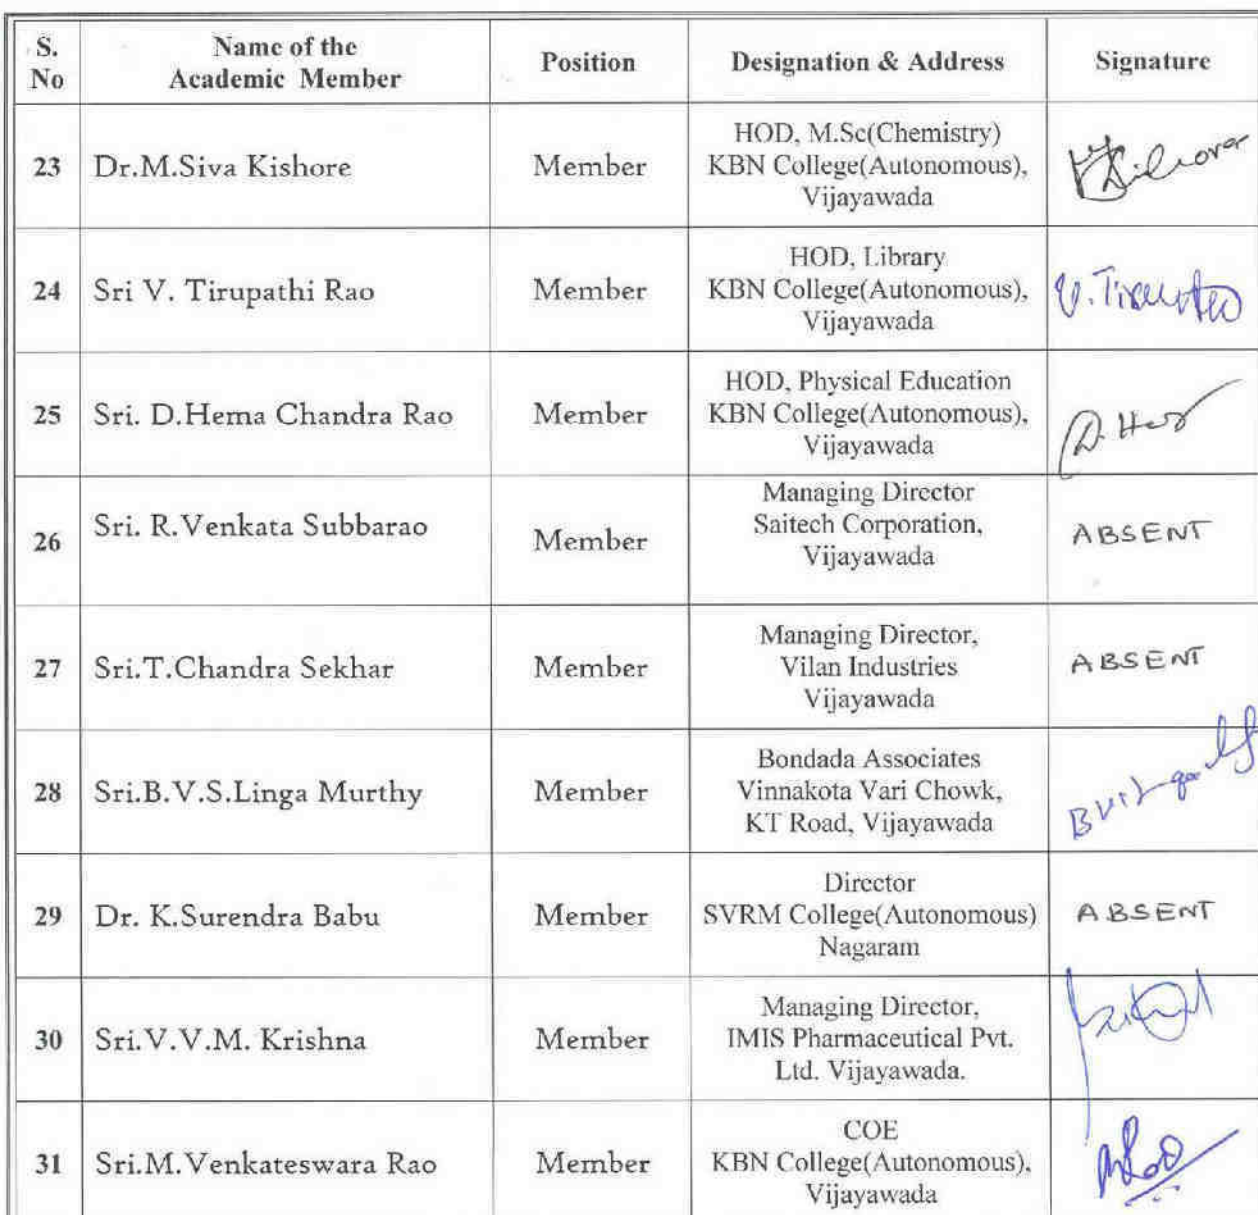 S. No
Name of the Academic Member
Position
Designation & Address
Signature
23
Dr.M.Siva Kishore
Member
HOD, M.Sc(Chemistry)
KBN College(Autonomous),
Vijayawada
24
Sri V. Tirupathi Rao
Member
HOD, Library
KBN College(Autonomous),
Vijayawada
25
Sri. D.Hema Chandra Rao
Member
HOD, Physical Education
KBN College(Autonomous),
Vijayawada
26
Sri. R.Venkata Subbarao
Member
Managing Director
Saitech Corporation,
Vijayawada
ABSENT
27
Sri.T.Chandra Sekhar
Member
Managing Director,
Vilan Industries
Vijayawada
ABSENT
28
Sri.B.V.S.Linga Murthy
Member
Bondada Associates
Vinnakota Vari Chowk,
KT Road, Vijayawada
29
Dr. K.Surendra Babu
Member
Director
SVRM College(Autonomous)
Nagaram
ABSENT
30
Sri.V.V.M. Krishna
Member
Managing Director,
IMIS Pharmaceutical Pvt.
Ltd. Vijayawada.
31
Sri.M.Venkateswara Rao
Member
COE
KBN College(Autonomous),
Vijayawada